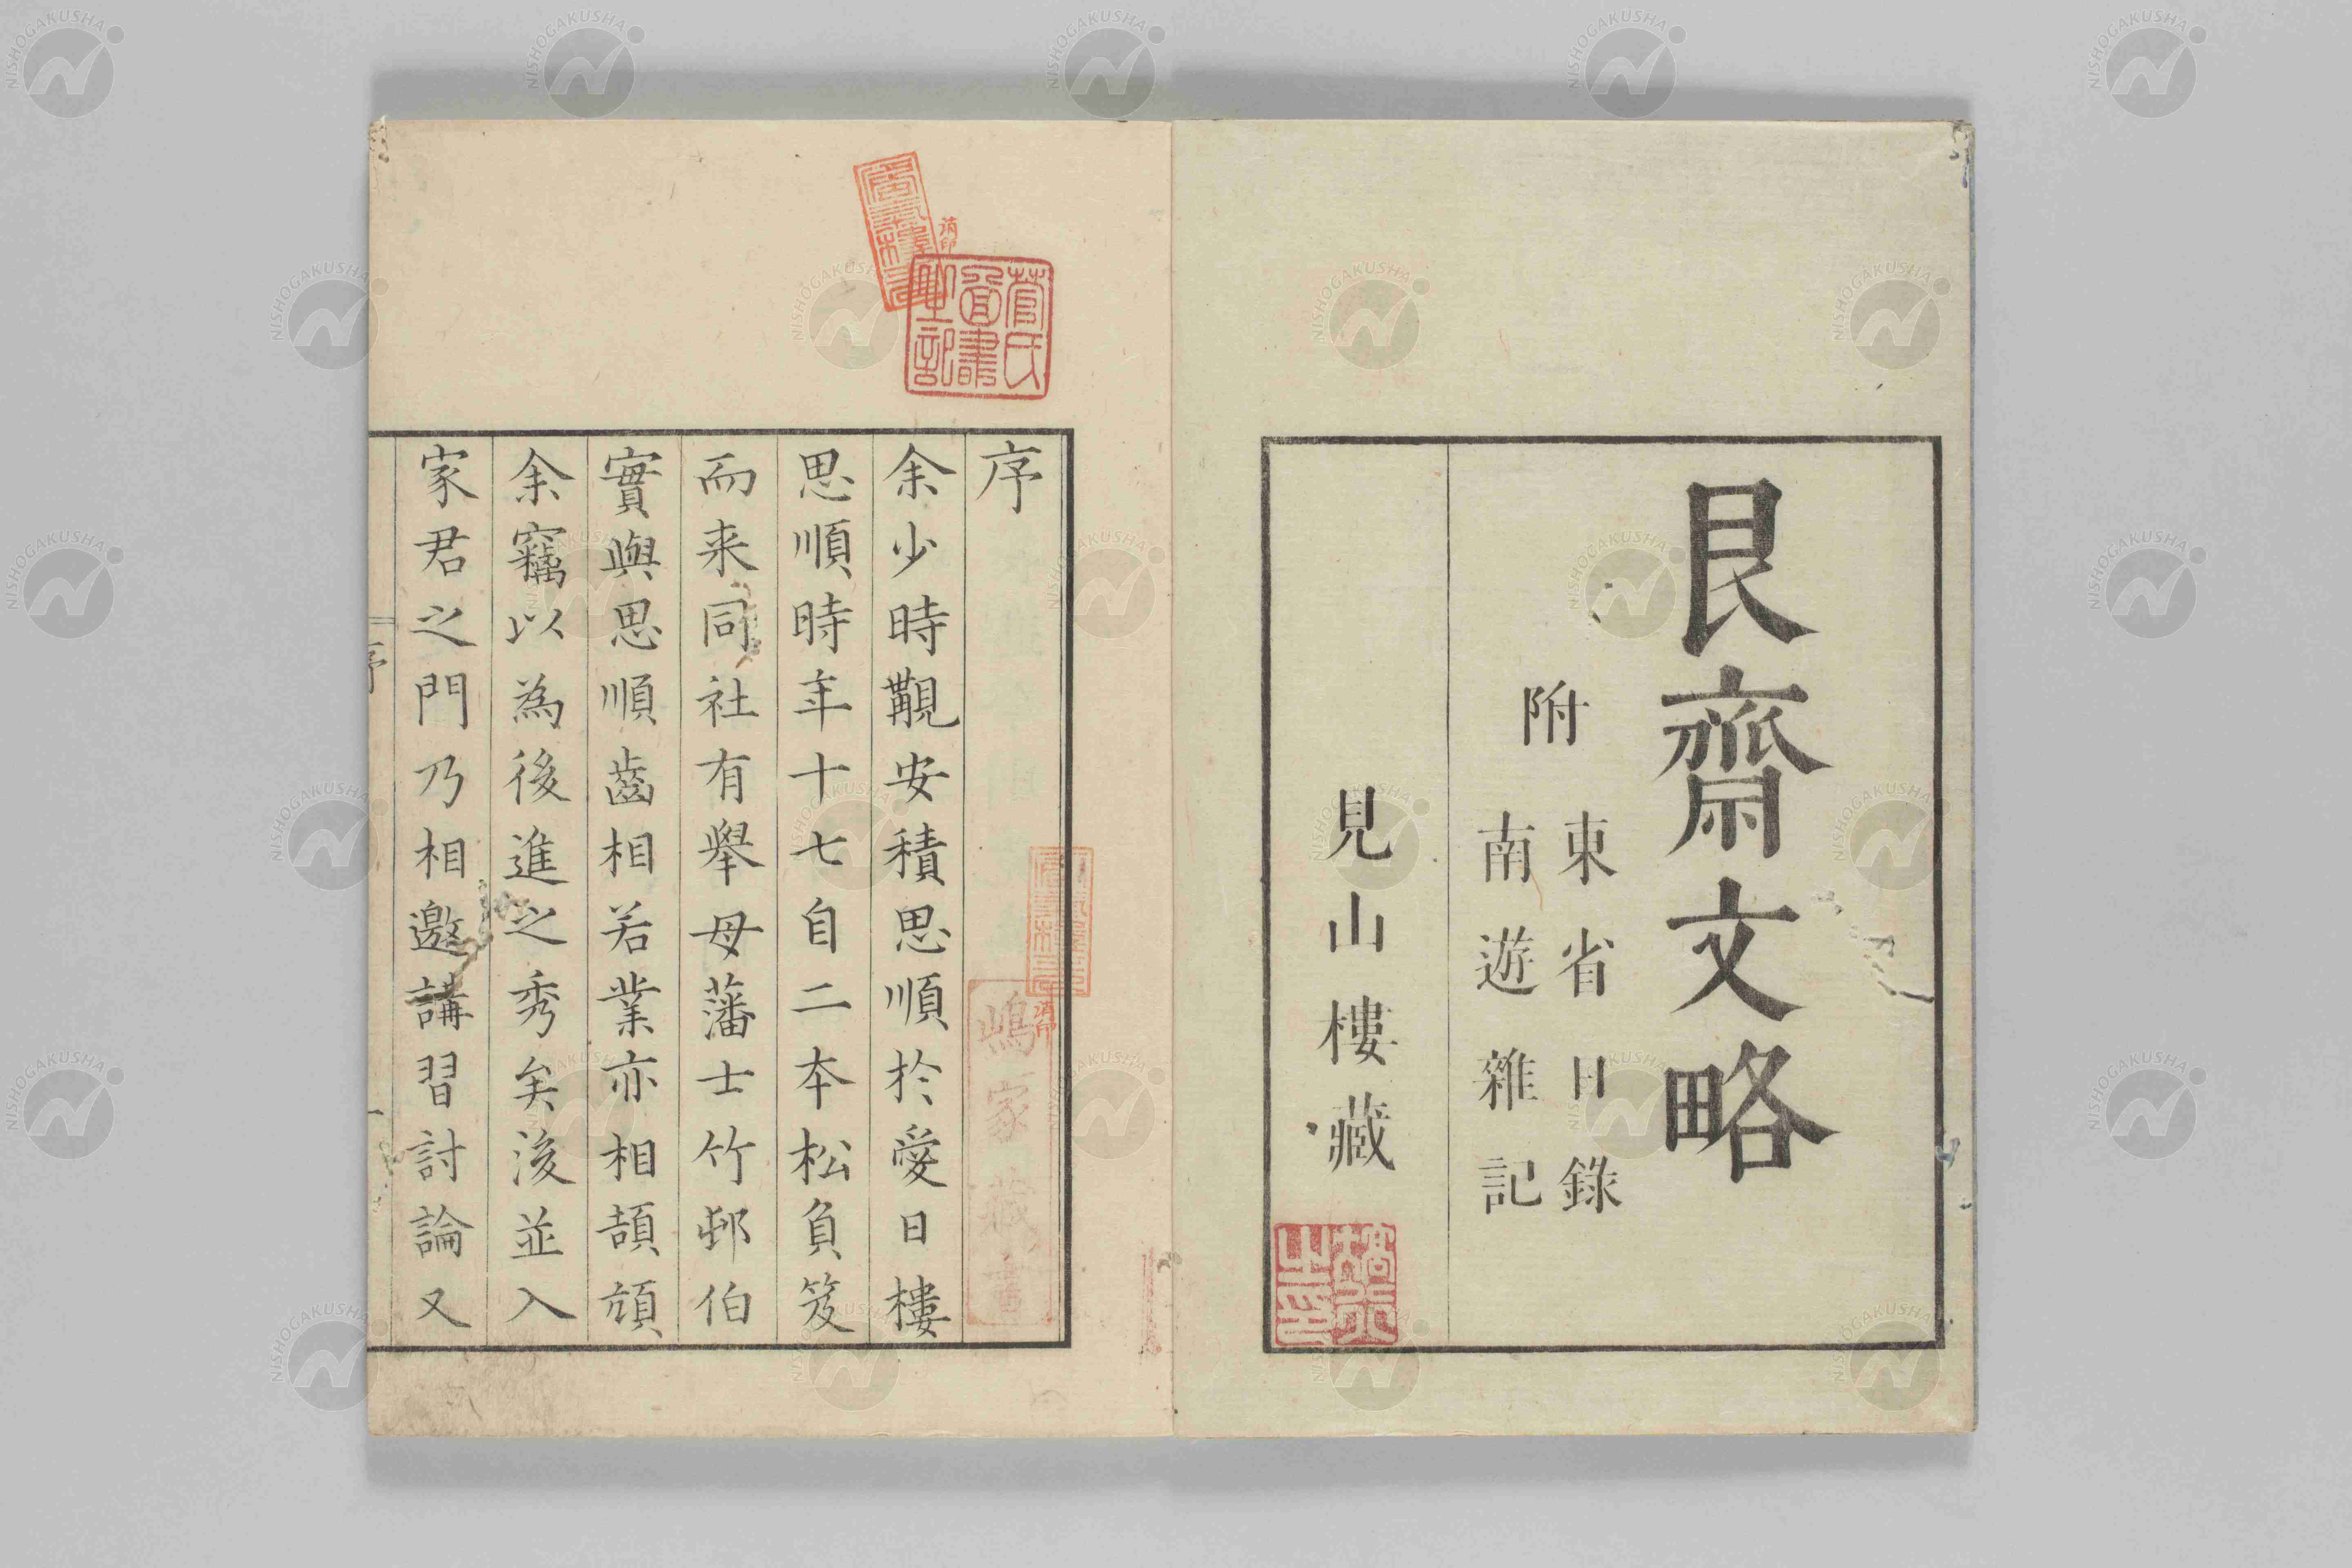 艮齋文略
附
東省日錄
南遊雜記
見山樓藏
序
余少時覯安積思順於愛日樓
思順時年十七自二本松負笈
而来同社有舉母藩士竹邨伯
實與思順齒相若業亦相頡頏
余竊以為後進之秀矣後並入
家君之門乃相邀講習討論又
序
菅氏
圖書
之記
嶋家藏書
消印
消印
NISHOGAKUSHA